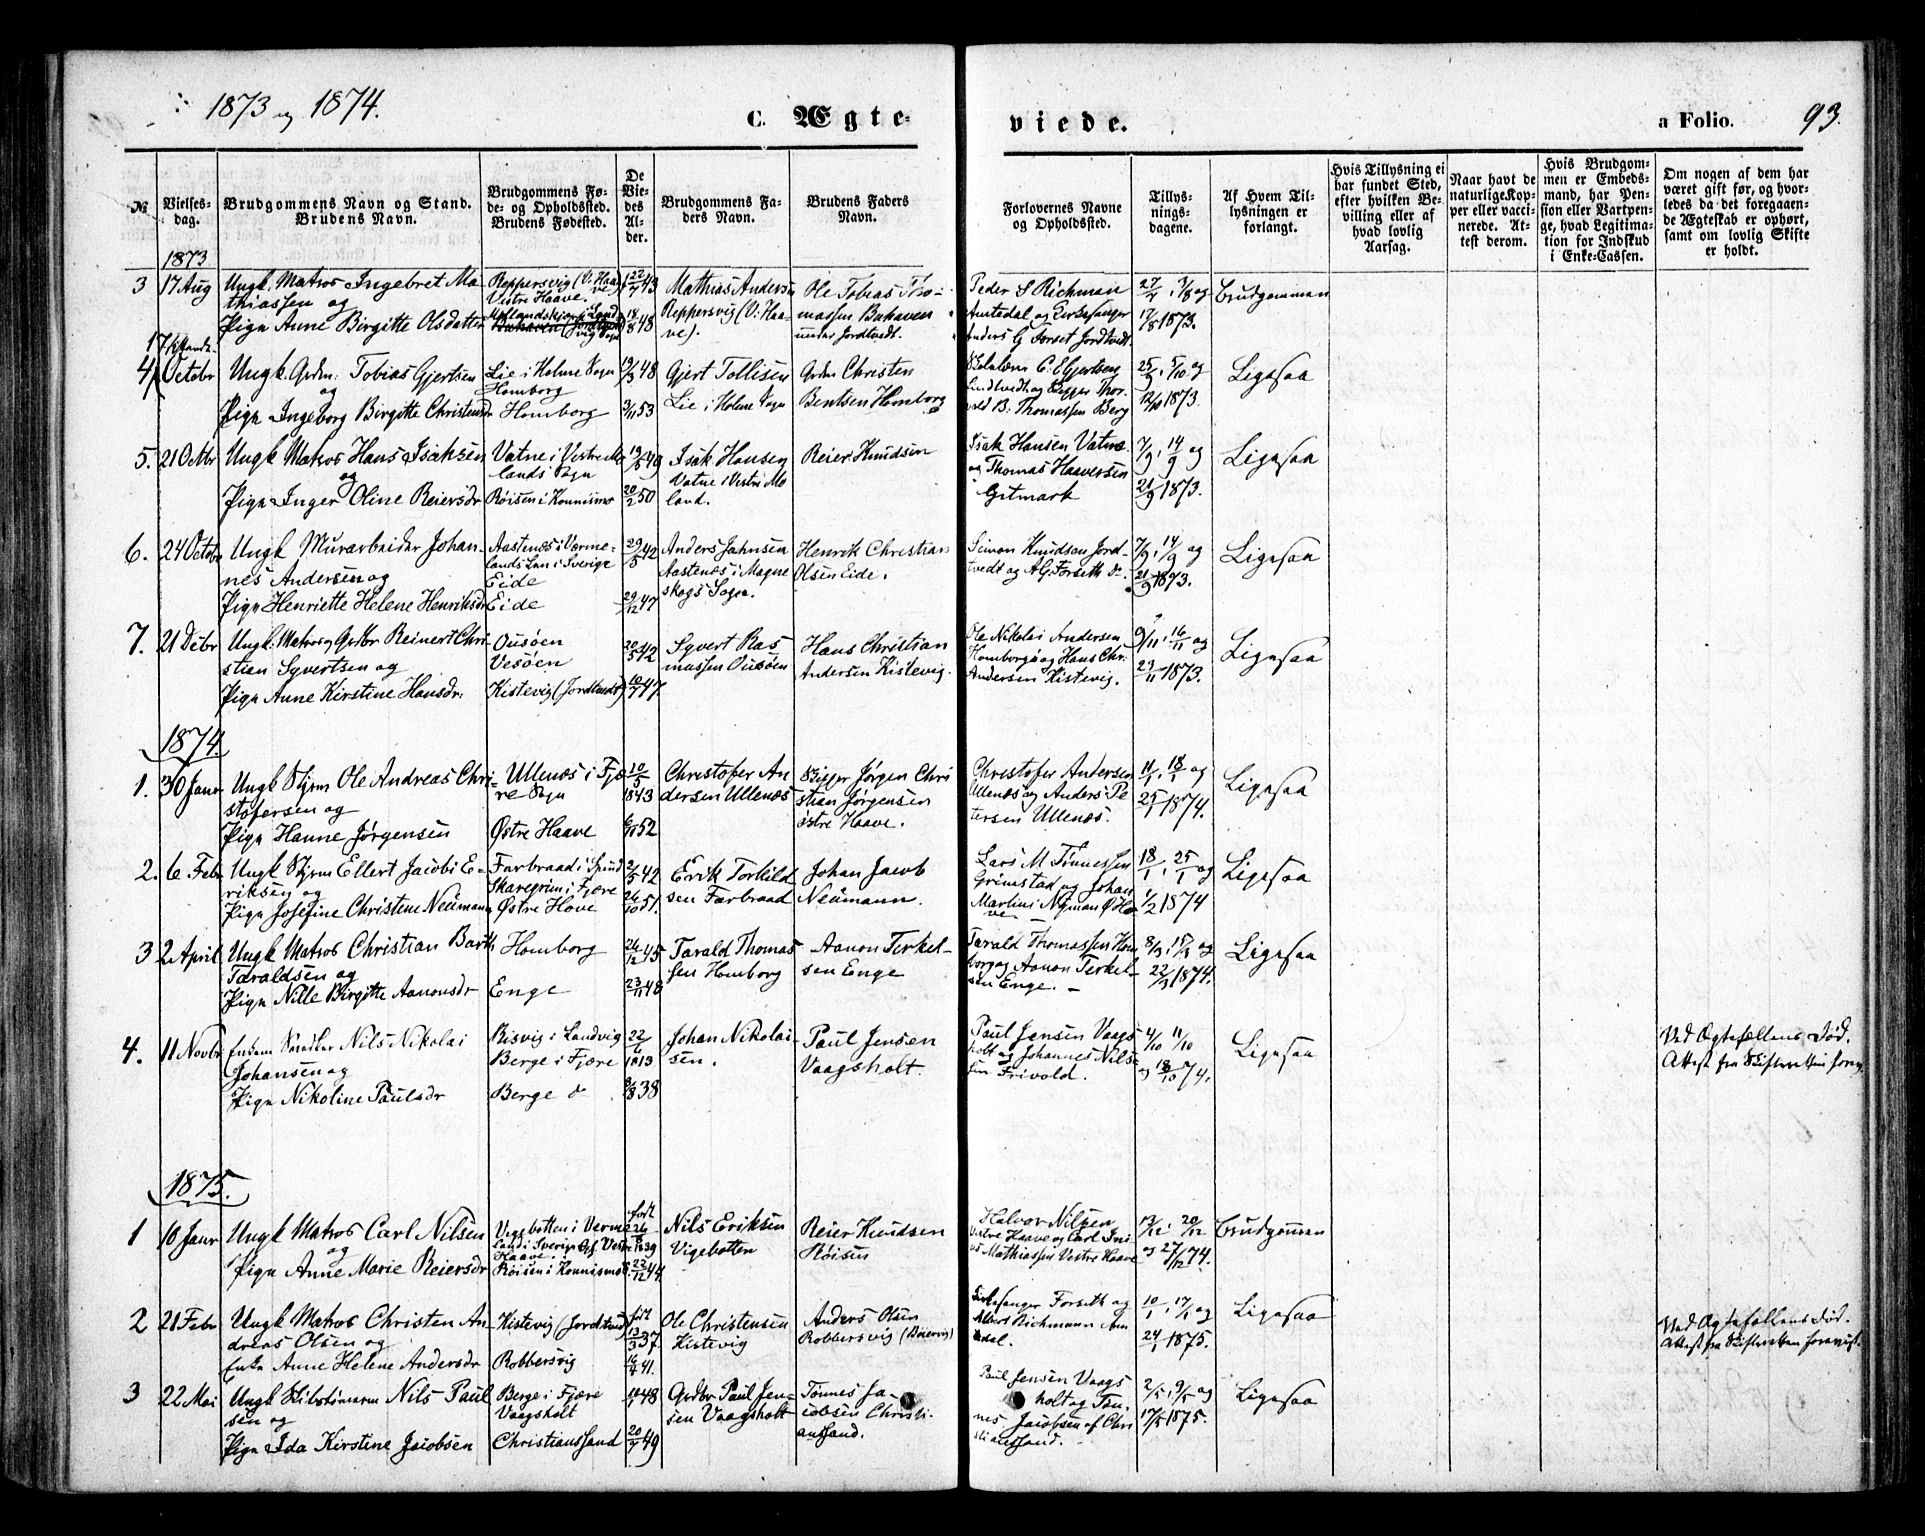 1873 og 1874.
C. Ægte-
viede.
a Folio. 93.
№
Vielses-
dag.
Brudgommens Navn og Stand.
Brudens Navn.
Brudgommens Fø-
de- og Opholdssted.
Brudens Fødested.
De
Vie-
des
Al-
der.
Brudgommens Fa-
ders Navn.
Brudens Faders
Navn.
Forlovernes Navne
og Opholdssted.
Tillys-
nings-
dagene.
Af Hvem Til-
lysningen er
forlangt.
Hvis Tillysning ei
har fundet Sted,
efter hvilken Be-
villing eller af
hvad lovlig
Aarsag.
Naar havt de
naturlige Kop-
per eller vacci-
nerede. At-
test derom.
Hvis Brudgom-
men er Embeds-
mand, har Pen-
sion eller Vartpen-
ge, hvad Legitima-
tion for Indskud
i Enke-Cassen.
Om nogen af dem har
været gift før, og hvor-
ledes da det foregaaen-
de Ægteskab er ophørt,
samt om lovlig Skifte
er holdt.
1873
3 17 Aug
Ungk. Matros Ingebret Ma
thiassen og
Pige Anne Birgitte Olsdatter
Reppersvig (V: Haa
ve)
Vestre Haave.
22/7 43
18/8 48
Mathias Andersen
Reppersvig (V: Haa-
ve).
Ole Tobias Tho-
massen Buhaven
under Jordtvedt.
Peder S Richman
Amtedal og Kirkesanger
Anders G Forset Jordtvedt.
27/7, 3/8 og
17/8 1873.
Brudgommen
4 17 Octobr
Ungk. Grdm. Tobias Gjertsen
og
Pige Ingeborg Birgitte Christensdr
Lie i Holme Sogn
Homborg
Homborg
19/3 48
3/11 53
Gjert Tollisen
Lie i Holme Sogn
Grdm Christen
Bentsen Homborg
C. Gjertsen
Lindtvedt og Skipper Thor
vald B. Thomassen Berg
25/9, 5/10 og
12/10 1873.
Ligesaa
5. 21 Octbr
Ungk Matros Hans Isaksen
og
Pige Inger Oline Reiersdr
Vatne i Vestre Mo
lands Sogn
Röisen i Konnismo
19/5 49
20/2 50
Isak Hansen
Vatne i Vestre Mo
land.
Reier Knudsen
Isak Hansen Vatne
og Thomas Haaversen
Gitmark
7/9, 14/9 og
21/9 1873.
Ligesaa
6. 24 Octobr
Ungk Murarbeider Johan-
nes Andersen og
Pige Henriette Helene Henriksdr
Aastenæs i Værme-
lands Len i Sverige
Eide
Eide
29/5 42
29/12 47
Anders Jahnsen
Aastenæs i Magne
skogs Sogn.
Henrik Christian
Olsen Eide.
Simon Knudsen Jord-
tvedt og A G Forseth do.
7/9, 14/9 og
21/9 1873.
Ligesaa
7. 21 Debr
Ungk. Matros og Grdbr Reinert Chri-
stian Syvertsen og
Pige Anne Kirstine Hansdr.
Ousöen
Vesöen
Kistevig (Jordtvedt)
20/5 42
10/7 47.
Syvert Ras
mussen Ousöen
Hans Christian
Andersen Kistevig.
Ole Nikolai Andersen
Homborg og Hans Chr.
Andersen Kistevig.
9/11, 16/11 og
23/11 1873.
Ligesaa
1874.
1. 30 Janr
Ungk Styrm Ole Andreas Chri-
stofersen og
Pige Hanne Jørgensen
Ullenæs i Fjæ-
re Sogn
Østre Haave
10/5
1843
6/11 52
Christofer An
dersen Ullenæs
Skipper Jørgen Chri
stian Jørgensen
østre Haave.
Christofer Andersen
Ullenæs og Anders Pe
tersen Ullenæs.
11/1, 18/1 og
25/1 1874.
Ligesaa
2. 6 Febr
Ungk Styrm Ellert Jacobi E-
riksen og
Pige Josefine Christine Neumann
Farbraad i Spind
Skaregrøm i Fjære
Østre Hove
2/5 42
26/10 51.
Erik Torkild
sen Farbraad
Johan Jacob
Neumann.
Lars M Tönnessen
Grimstad og Johan
Martini Nyman Ø Ha
ve
18/1, 25/1 og
1/2 1874
Ligesaa
3 2 April
Ungk Matros Christian Barth
Taraldsen og
Pige Nille Birgitte Aanonsdr
Homborg
Enge
26/12 45
23/11 48
Tarald Thomas
sen Homborg
Aanon Terkel-
sen Enge
Tarald Thomassen Hom
borg og Aanon Terkel-
sen Enge.
8/3, 15/3 og
22/3 1874.
Ligesaa
4. 11 Novbr
Enkem Nils Nikolai
Johansen og
Pige Nikoline Paulsdr
Risvig i Landvig
Berge i Fjære
Berge do
22/6
1813
8/8 38
Johan Nikolai-
sen.
Paul Jensen
Vaagsholt.
Paul Jensen Vaags
holt og Johannes Nils-
sen Frivold.
4/10 11/10
og 18/10 74.
Ligesaa
Ved Ægtefællens Død.
Attest fra Skifteretten forev
1875.
1 10 Janr
Ungk Matros Carl Nilsen
og
Pige Anne Marie Reiersdr
Vigebotten i Verme
land i Sverige Vestre
Haave.
Röisen i Konnismo
født
26/8
1839
22/12 44.
Nils Eriksen
Vigebotten
Reier Knudsen
Röisen
Halvor Nilsen
Vestre Haave og Carl Ja
Mathiassen Vestre Haave
13/12, 20/12
og 27/12 74.
Brudgommen
2 21 Febr
Ungk Matros Christen An
dreas Olsen og
Enke Anne Helene Andersdr
Kistevig (Jordtvedt)
Robbersvig
født
13/3 37.
16/7 41.
Ole Christensen
Kistevig
Anders Olsen
Robbersvig (Böiervig)
Kirkesanger Forseth og
Albert Richmann Am
dal.
10/1, 17/1 og
24/1 1875.
Ligesaa
Ved Ægtefællens Død.
Attest fra Skifteretten forevist.
3 22 Mai
Ungk Skibstömmerm Nils Paul
sen og
Pige Ida Kirstine Jacobsen
Berge i Fjære
Vaagsholt
Christianssand
10/1 48
20/7 49
Grdbr Paul Jen-
sen Vaagsholt
Tønnes Ja-
cobsen Christi-
anssand.
Paul Jensen Vaags
holt og Tøn-
nes Jacobsen af Chri
stianssand.
2/5, 9/5 og
17/5 1875.
Ligesaa